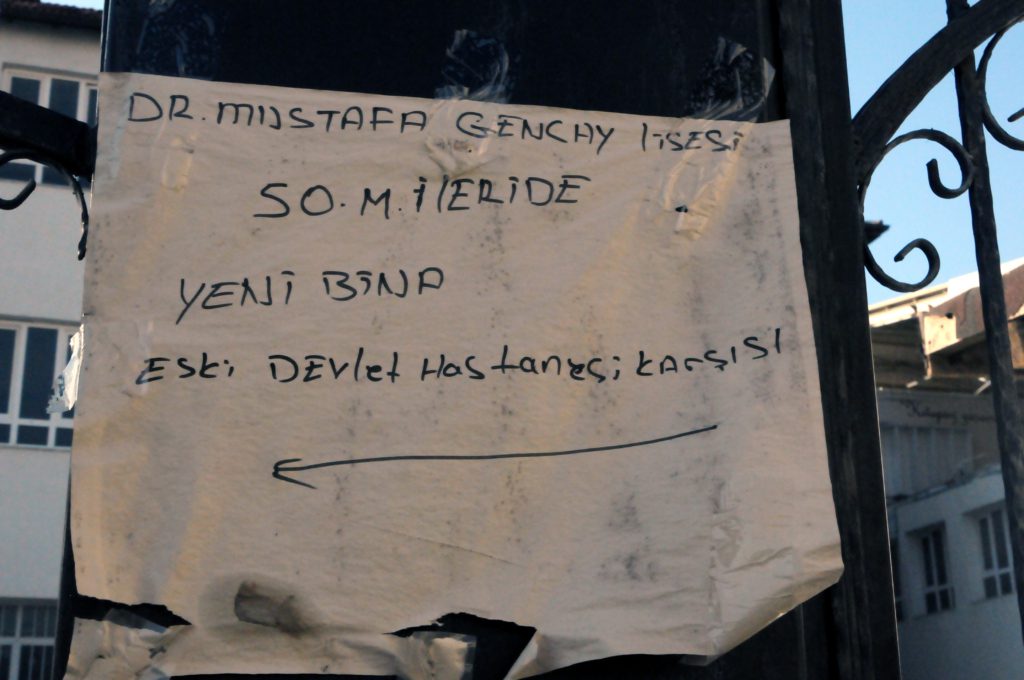 DR. MUSTAFA GENCAY liSESi
50. M. iLERiDE
YENi BiNA
ESKi DEVlet Hastanesi KARŞISI